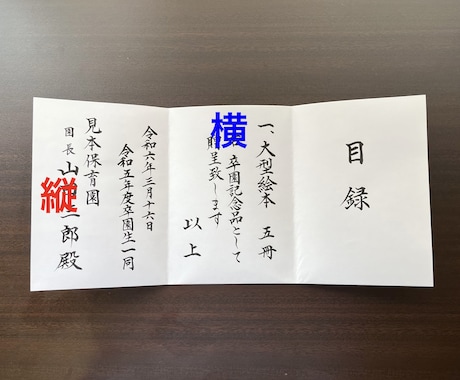 目録
一、大型絵本　五冊
卒園記念品として
贈呈致します
以上
令和六年三月十六日
令和五年度卒園生一同
見本保育園
園長　山
郎殿
横
縦